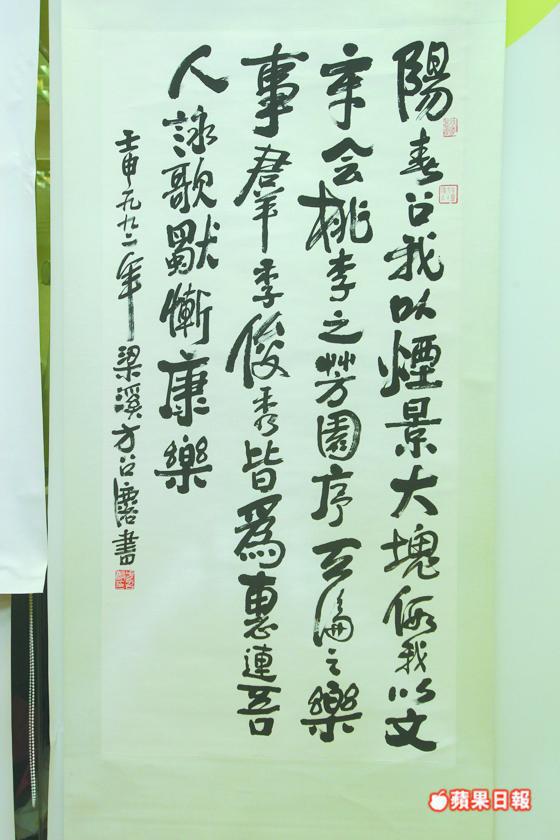 陽春召我以煙景大塊假我以文
章会桃李之芳園序天倫之樂
事羣季俊秀皆爲惠連吾
人詠歌獨慚康樂
壬申一九九二年梁溪方召麐書
蘋果日報